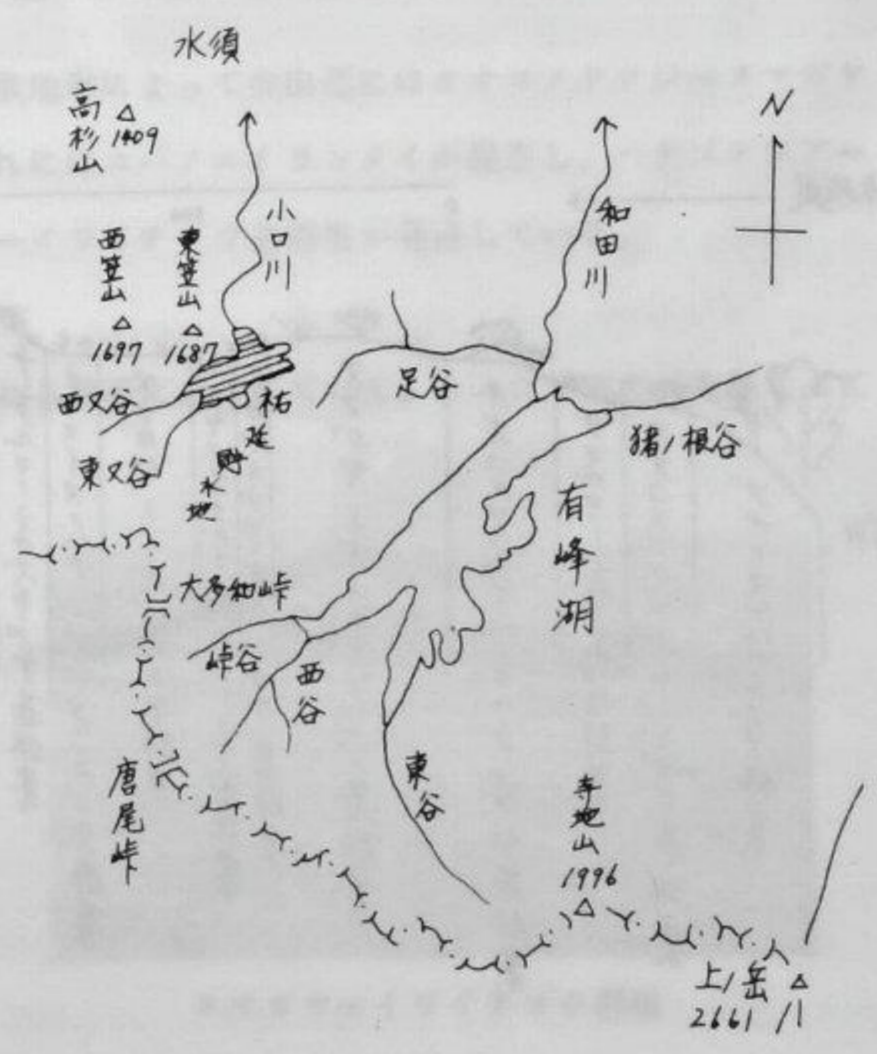 水須
高杉山
1409
N
小口川
和田川
西笠山
1697
東笠山
1687
足谷
西又谷
祐延貯水地
猪ノ根谷
東又谷
有峰湖
大多和峠
峠谷
西谷
東谷
唐尾峠
寺地山
1996
上ノ岳
2661